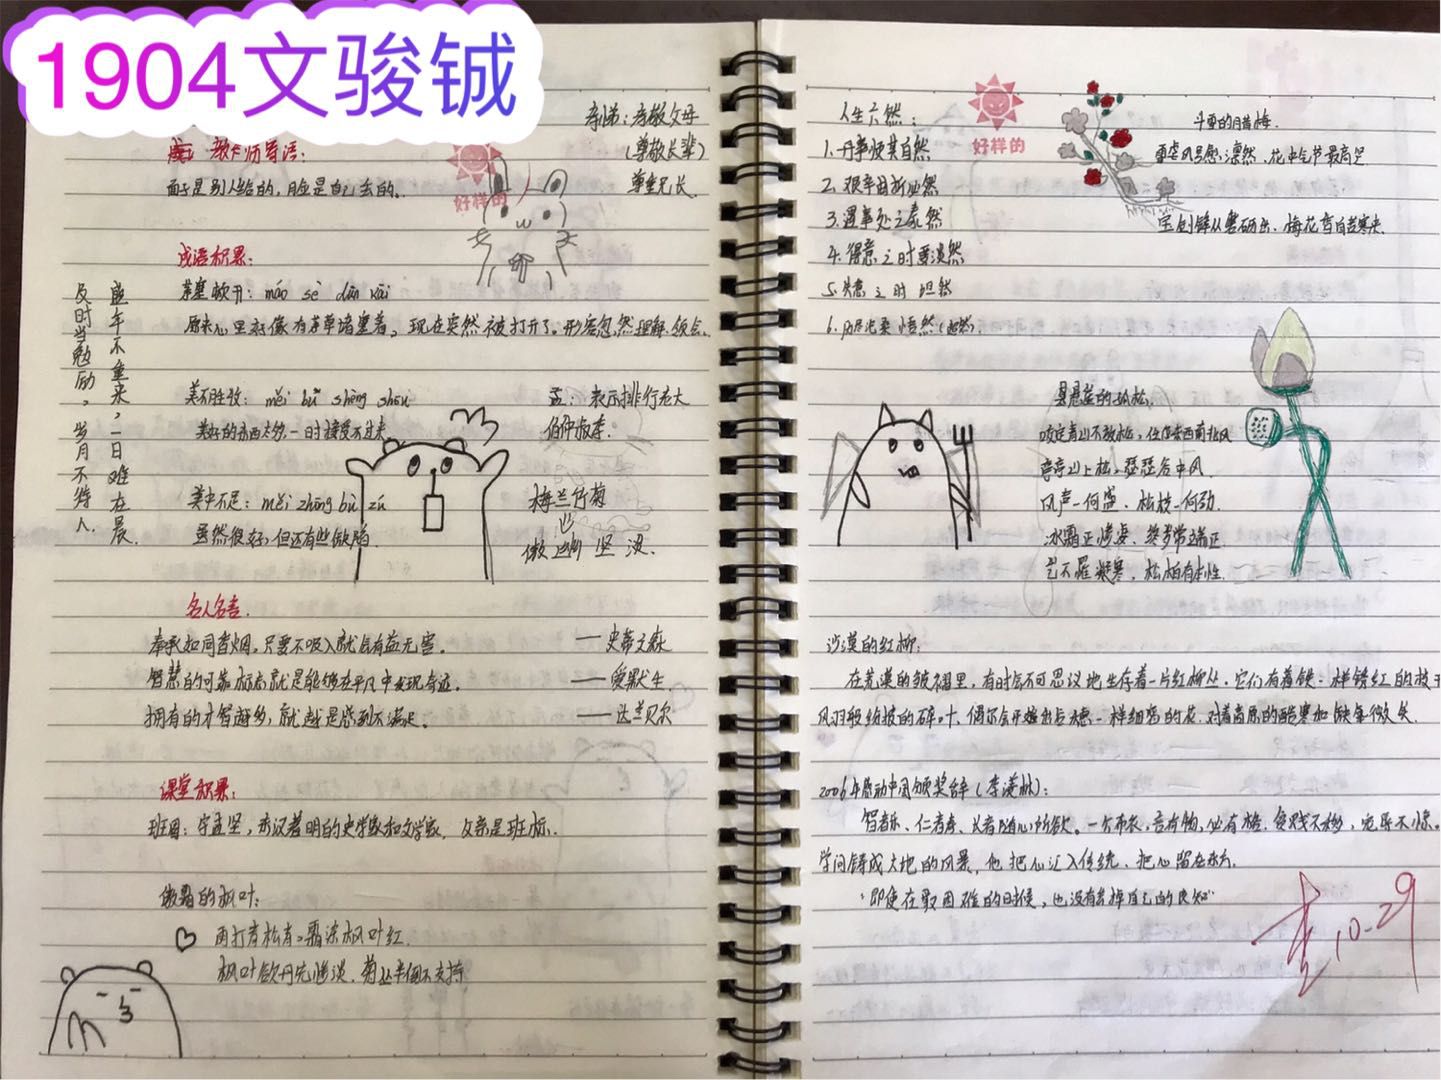 1904文骏铖
孝悌：孝敬父母
（尊敬长辈）
尊重兄长
教师寄语：
面子是别人给的，脸是自己丢的。
好样的
成语积累：
茅塞顿开：máo sè dùn kāi
原来心里好像有茅草堵塞着，现在突然被打开了。形容忽然理解、领会.
盛年不重来，一日难在晨.
及时当勉励。岁月不待人.
美不胜收：měi bù shèng shōu
美好的东西太多一时接受不过来
孟：表示排行老大
伯仲叔季.
美中不足：měi zhōng bù zú
虽然很好，但还有些缺陷.
梅兰竹菊
傲 幽 坚 淡.
名人名言.
奉承如同香烟。只要不吸入就会有益无害。 ——史蒂文森
智慧的可靠标志就是能够在平凡中发现奇迹。 ——爱默生
拥有的才智越多，就越是感到不满足。 ——达兰贝尔
课堂积累：
班固：字孟坚，东汉著明的史学家和文学家，父亲是班彪.
傲霜的枫叶：
雨打青松青。霜染枫叶红.
枫叶欲丹先惨淡、菊丛半倒不支持
人生六然：
好样的
1.凡事顺其自然
2.艰辛曲折必然
3.遇事处之泰然
4.得意之时要淡然
5.失意之时坦然
6.历尽沧桑悟然
斗雪的腊梅.
花中气节最高坚
宝剑锋从磨砺出、梅花香自苦寒来.
悬崖的孤松.
咬定青山不放松，任尔东西南北风
亭亭山上松，瑟瑟谷中风
风声一何盛、松枝一何劲.
冰霜正惨凄、终岁常端正.
岂不罹凝寒、松柏有本性.
沙漠的红柳：
在荒漠的皱褶里，有时会不可思议地生存着一片红柳丛.它们有着铁一样锈红的枝干
风羽般纷披的碎叶、偶尔会开出与穗一样细密的花.对着高原的酷寒和缺氧微笑.
2006年感动中国颁奖辞（季羡林）：
智者乐、仁者寿、长者随心所欲。一介布衣，言有物，必有格，贫贱不移，宠辱不惊。
学问铸成大地的风景，他把心汇入传统、把心留在东方.
“即使在最困难的时候，也没有丢掉自己的良知”
10-29